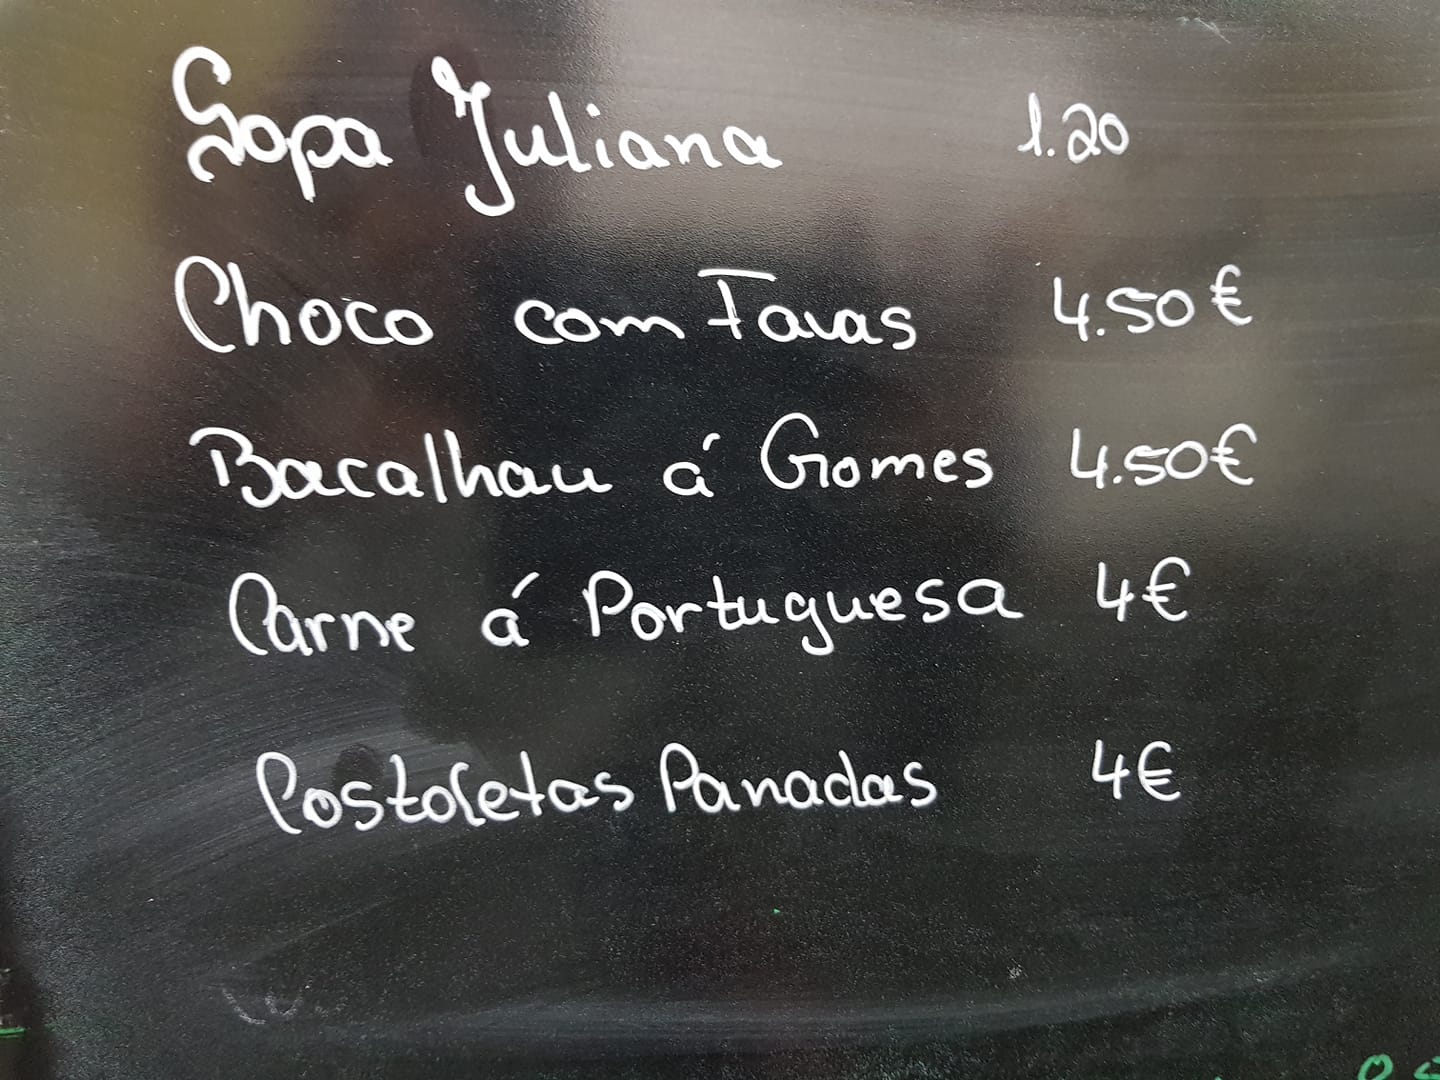 Sopa Juliana 1.20
Choco com Favas 4.50€
Bacalhau á Gomes 4.50€
Carne á Portuguesa 4€
Costoletas Panadas 4€